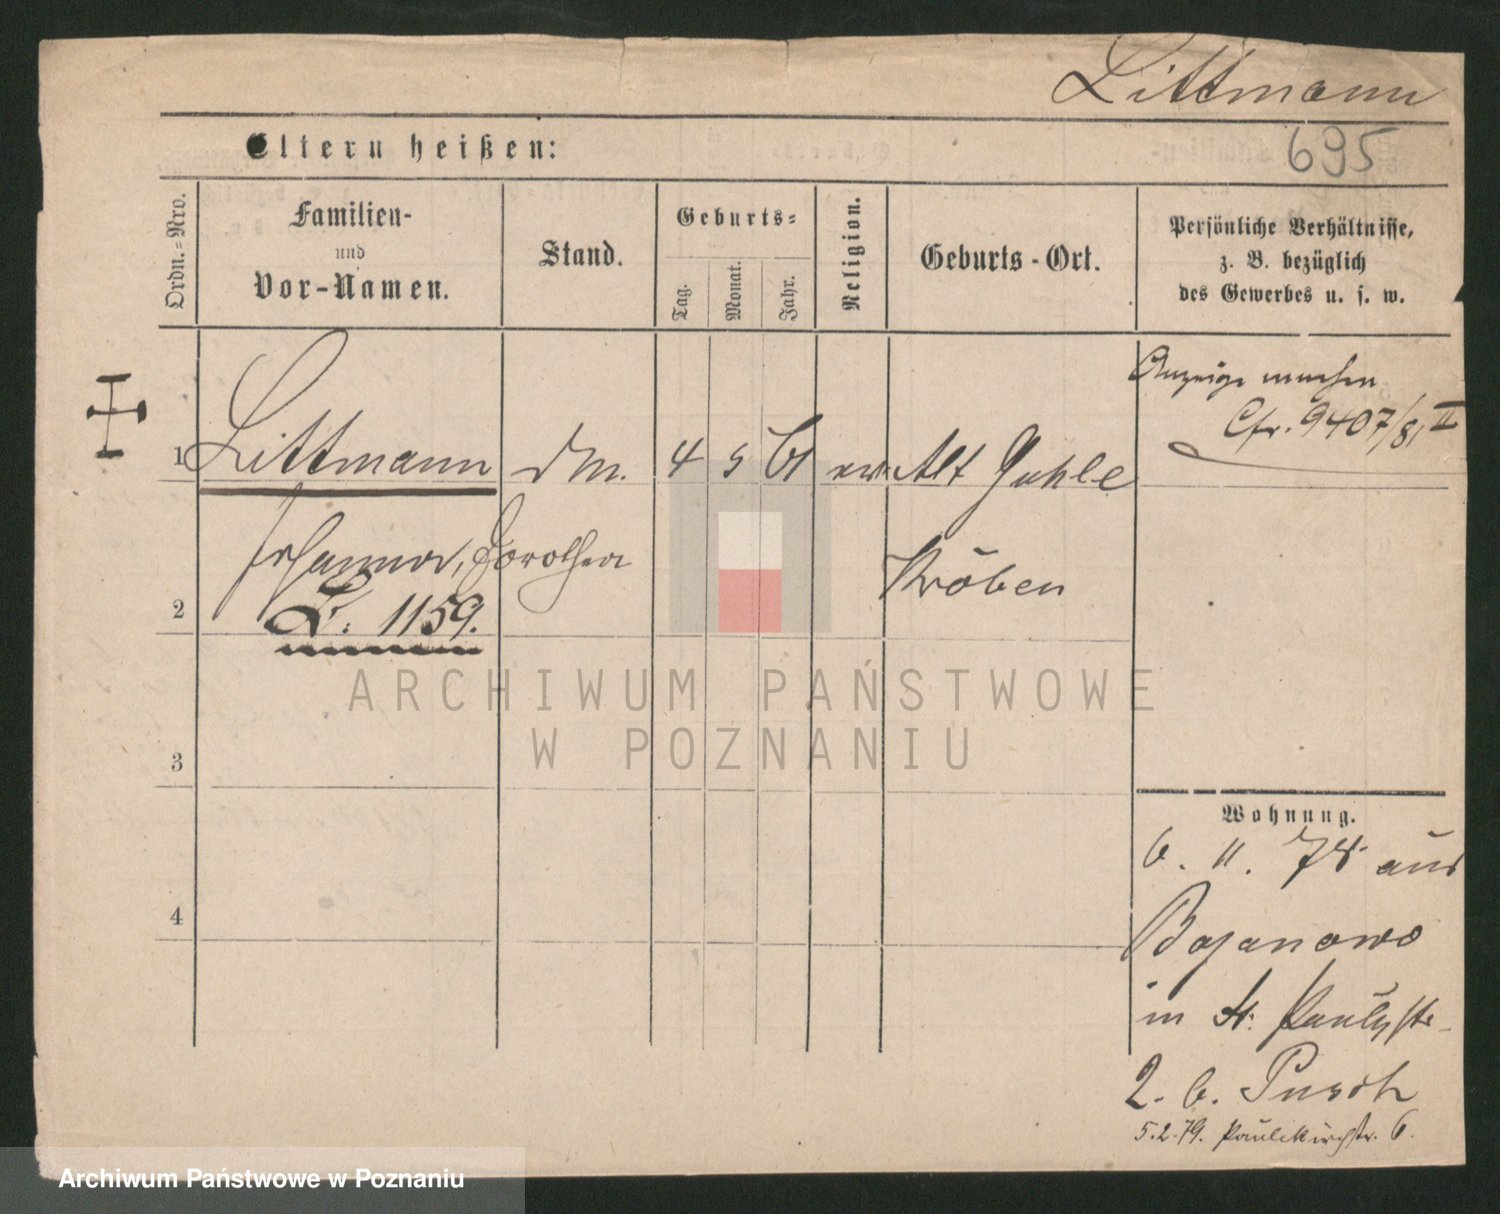 Littmann
695
Eltern heißen:
Ordn.=Nro.
Familien-
und
Vor-Namen.
Stand.
Geburts=
Tag.
Monat.
Jahr.
Religion.
Geburts-Ort.
Persönliche Verhältnisse,
z. B. bezüglich
des Gewerbes u. s. w.
Anzeige machen
Cfr. 9407/81 II
1 Littmann DM. 4 5 61 ev. Alt Guhle
Johanna, Dorothea
Kröben
2
L. 1159.
ARCHIWUM PAŃSTWOWE
W POZNANIU
3
4
Wohnung.
6. 11. 78 aus
Bojanowo
in St. Paulistr.
2. b. Pusch
5.2.79. Paulikirchstr. 6.
Archiwum Państwowe w Poznaniu